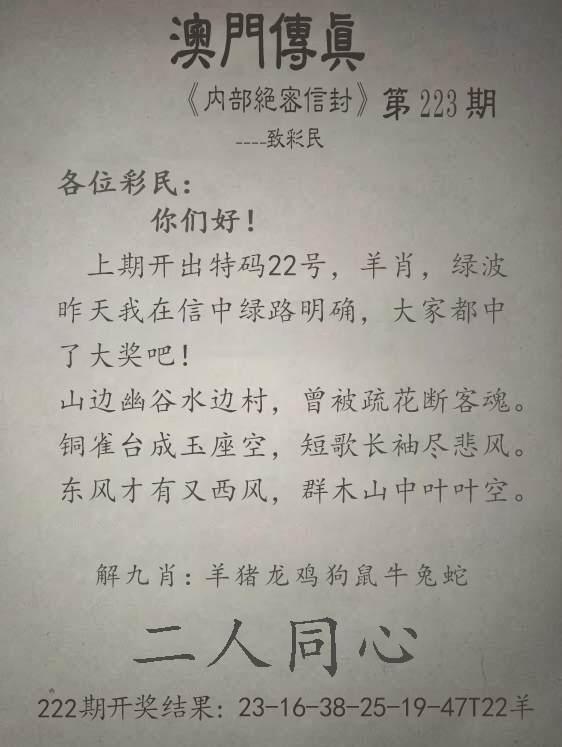 澳門傳真
《内部絕密信封》第223期
----致彩民
各位彩民：
你们好！
上期开出特码22号，羊肖，绿波
昨天我在信中绿路明确，大家都中
了大奖吧！
山边幽谷水边村，曾被疏花断客魂。
铜雀台成玉座空，短歌长袖尽悲风。
东风才有又西风，群木山中叶叶空。
解九肖：羊猪龙鸡狗鼠牛兔蛇
二人同心
222期开奖结果：23-16-38-25-19-47T22羊